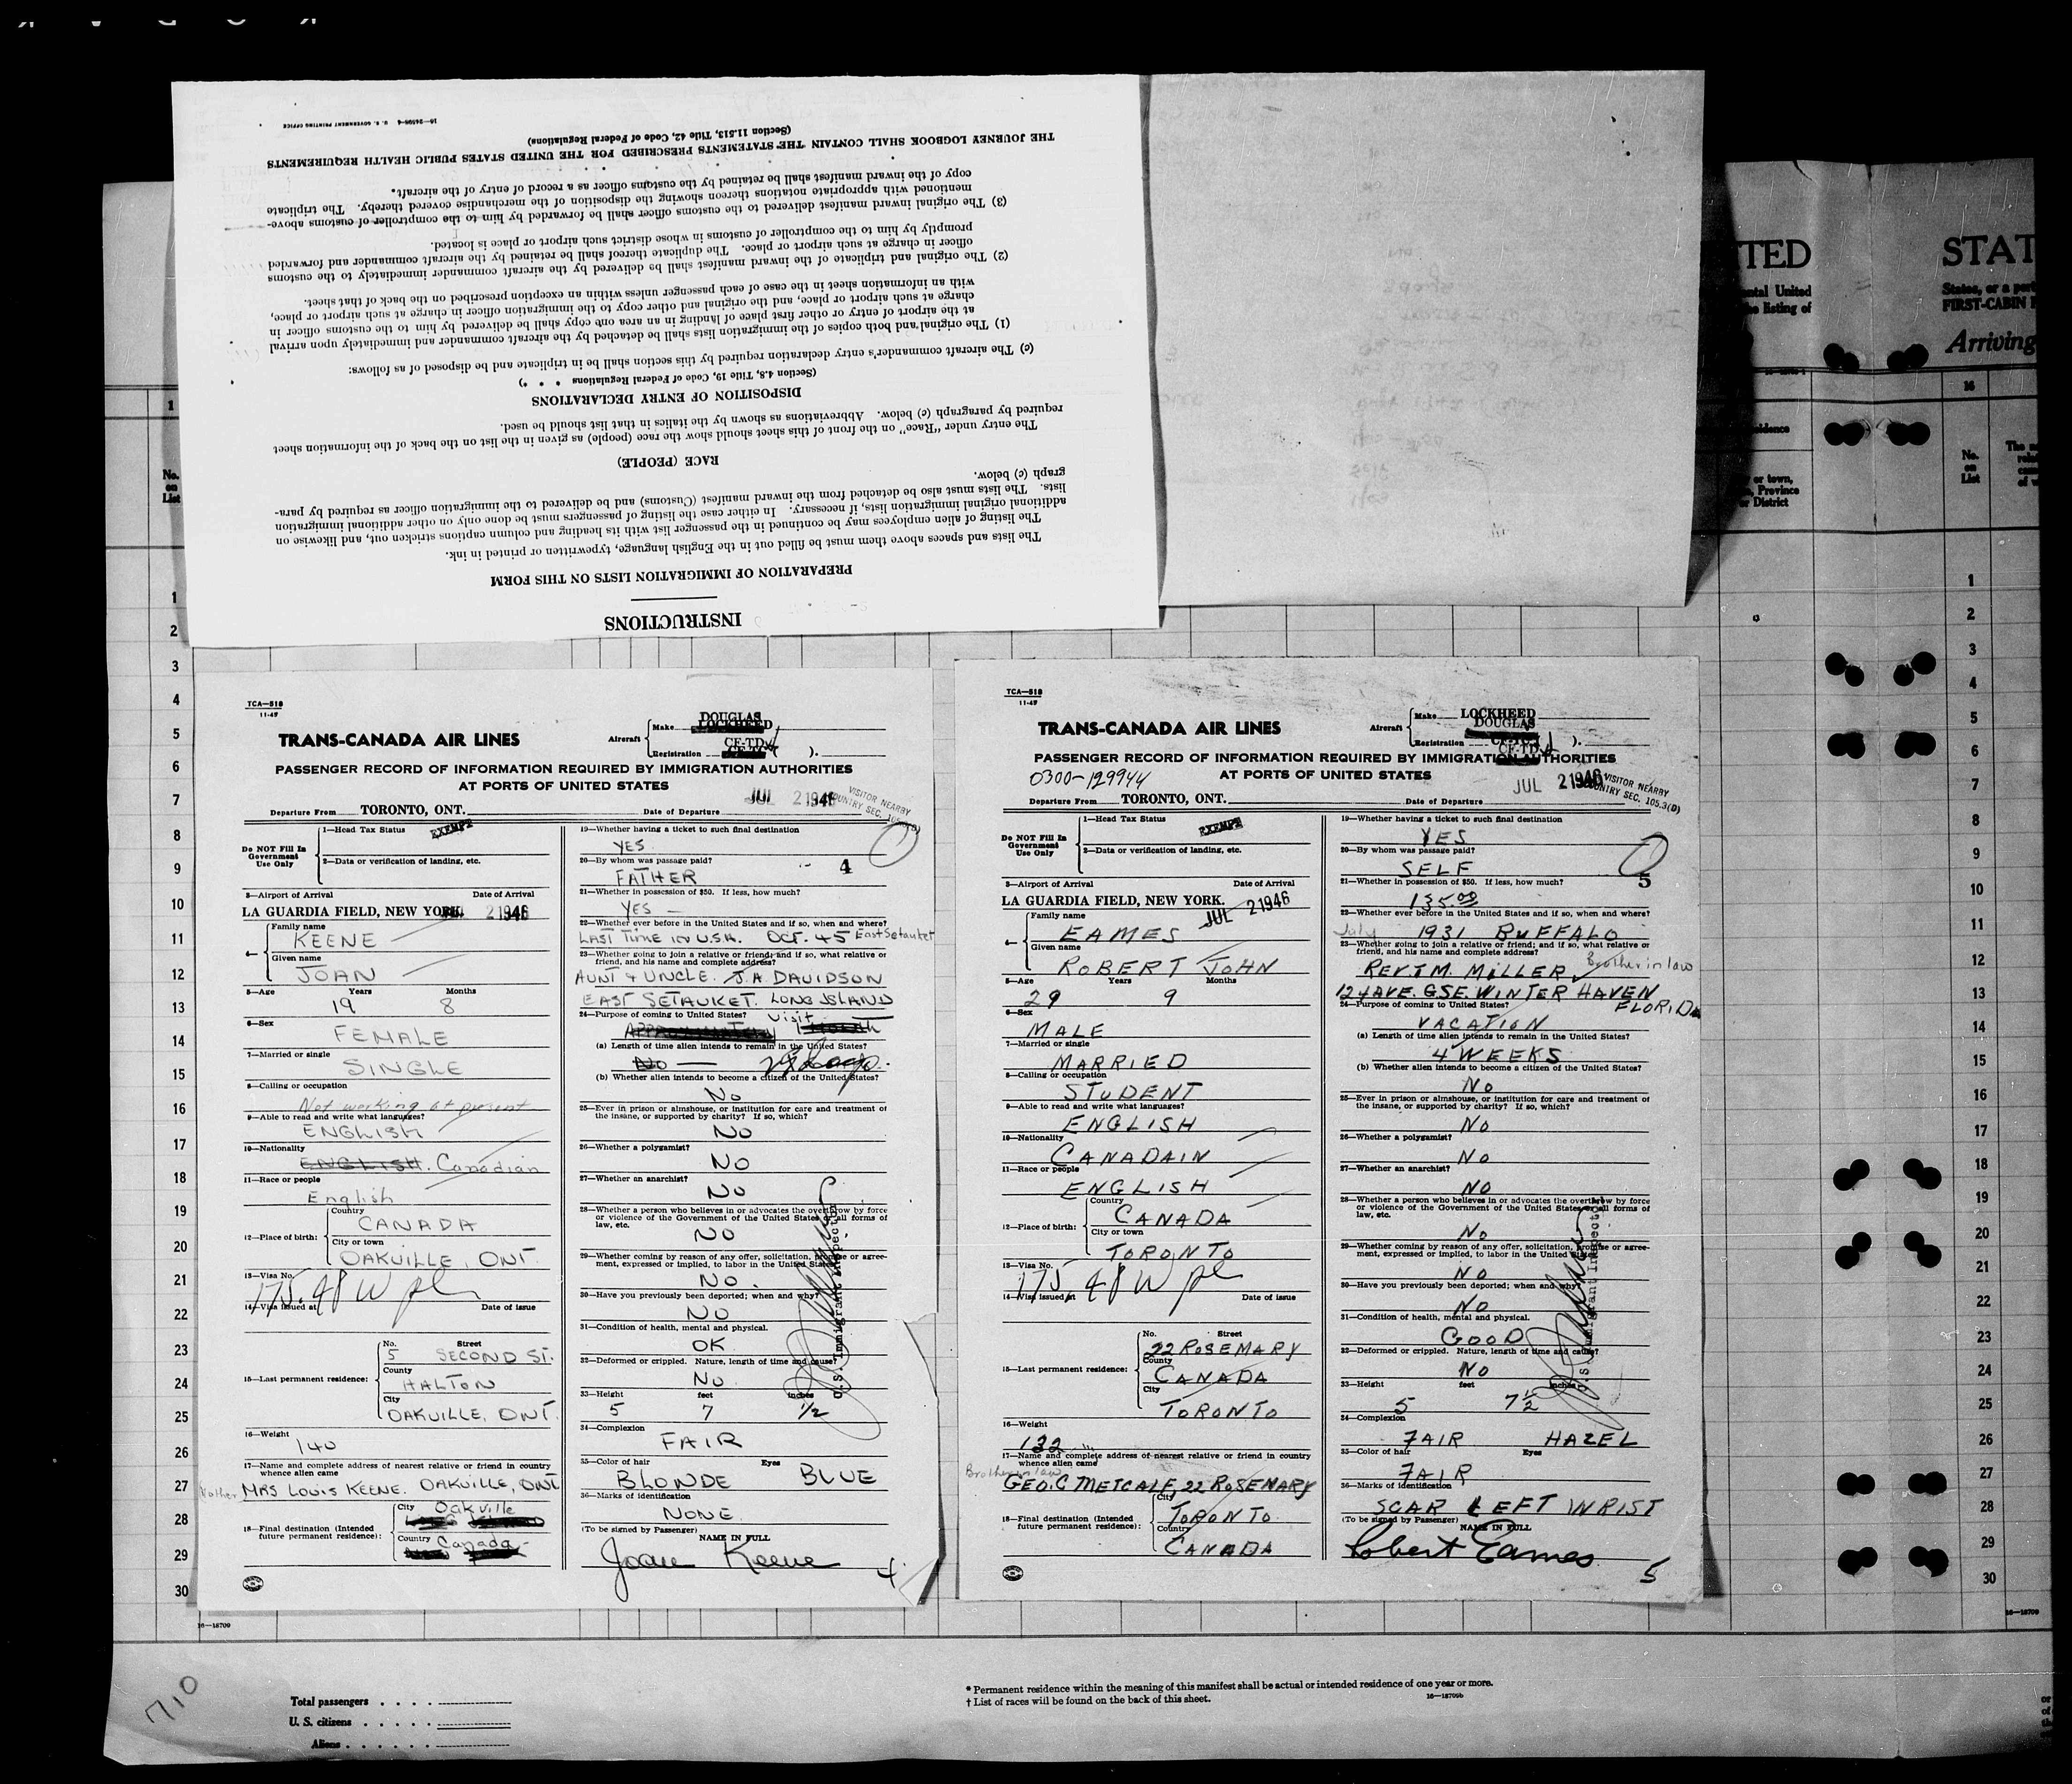 INSTRUCTIONS
PREPARATION OF IMMIGRATION LISTS ON THIS FORM
The lists and spaces above them must be filled out in the English language, typewritten or printed in ink.
The listing of alien employees may be continued in the passenger list with its heading and column captions stricken out, and likewise on
additional original immigration lists, if necessary. In either case the listing of passengers must be done only on other additional immigration
lists. The lists must also be detached from the inward manifest (Customs) and be delivered to the immigration officer as required by para-
graph (c) below.
RACE (PEOPLE)
The entry under "Race" on the front of this sheet should show the race (people) as given in the list on the back of the information sheet
required by paragraph (c) below. Abbreviations as shown by the italics in that list should be used.
DISPOSITION OF ENTRY DECLARATIONS
(Section 4.8, Title 19, Code of Federal Regulations * * *)
(c) The aircraft commander's entry declaration required by this section shall be in triplicate and be disposed of as follows:
(1) The original and both copies of the immigration lists shall be detached by the aircraft commander and immediately upon arrival
at the airport of entry or other first place of landing in an area one copy shall be delivered by him to the customs officer in
charge at such airport or place, and the original and other copy to the immigration officer in charge at such airport or place,
with an information sheet in the case of each passenger unless within an exception prescribed on the back of that sheet.
(2) The original and triplicate of the inward manifest shall be delivered by the aircraft commander immediately to the customs
officer in charge at such airport or place. The duplicate thereof shall be retained by the aircraft commander and forwarded
promptly by him to the comptroller of customs in whose district such airport or place is located.
(3) The original inward manifest delivered to the customs officer shall be forwarded by him to the comptroller of customs above-
mentioned with appropriate notations thereon showing the disposition of the merchandise covered thereby. The triplicate
copy of the inward manifest shall be retained by the customs officer as a record of entry of the aircraft.
THE JOURNEY LOGBOOK SHALL CONTAIN THE STATEMENTS PRESCRIBED FOR THE UNITED STATES PUBLIC HEALTH REQUIREMENTS
(Section 11.513, Title 42, Code of Federal Regulations)
U. S. GOVERNMENT PRINTING OFFICE
TCA—518
11-45
TRANS-CANADA AIR LINES
Aircraft Make DOUGLAS LOCKHEED
Registration CF-TD ).
PASSENGER RECORD OF INFORMATION REQUIRED BY IMMIGRATION AUTHORITIES
AT PORTS OF UNITED STATES
JUL 2 1946
VISITOR NEARBY
COUNTRY SEC. 105.3(D)
Departure From TORONTO, ONT. Date of Departure
Do NOT Fill In
Government
Use Only
1—Head Tax Status EXEMPT
2—Data or verification of landing, etc.
3—Airport of Arrival Date of Arrival
LA GUARDIA FIELD, NEW YORK. JUL 2 1946
4— Family name
KEENE
Given name
JOAN
5—Age Years Months
19 8
6—Sex
FEMALE
7—Married or single
SINGLE
8—Calling or occupation
Not working at present
9—Able to read and write what languages?
ENGLISH
10—Nationality
ENGLISH. Canadian
11—Race or people
English
12—Place of birth: Country
CANADA
City or town
OAKVILLE, ONT.
13—Visa No.
175.48 W
14—Visa issued at Date of issue
15—Last permanent residence: No. Street
5 SECOND ST.
County
HALTON
City
OAKVILLE, ONT.
16—Weight
140
17—Name and complete address of nearest relative or friend in country
whence alien came
Mother MRS LOUIS KEENE. OAKVILLE, ONT.
18—Final destination (Intended
future permanent residence): City Oakville
Country Canada
19—Whether having a ticket to such final destination
YES
20—By whom was passage paid? 4
FATHER
21—Whether in possession of $50. If less, how much?
YES —
22—Whether ever before in the United States and if so, when and where?
LAST TIME IN U.S.A. OCT. 45 East Setauket
23—Whether going to join a relative or friend; and if so, what relative or
friend, and his name and complete address?
AUNT & UNCLE. J.A. DAVIDSON
EAST SETAUKET. LONG ISLAND
24—Purpose of coming to United States? Visit
APPROXIMATELY 1 Month
(a) Length of time alien intends to remain in the United States?
No —
(b) Whether alien intends to become a citizen of the United States?
No
25—Ever in prison or almshouse, or institution for care and treatment of
the insane, or supported by charity? If so, which?
No
26—Whether a polygamist?
No
27—Whether an anarchist?
No
28—Whether a person who believes in or advocates the overthrow by force
or violence of the Government of the United States or all forms of
law, etc.
No
29—Whether coming by reason of any offer, solicitation, promise or agree-
ment, expressed or implied, to labor in the United States?
No.
30—Have you previously been deported; when and why?
NO
31—Condition of health, mental and physical.
OK
32—Deformed or crippled. Nature, length of time and cause?
No
33—Height feet inches
5 7 1/2
34—Complexion
FAIR
35—Color of hair Eyes
BLONDE BLUE
36—Marks of identification
NONE
(To be signed by Passenger) NAME IN FULL
Joan Keene
4
U.S. Immigrant Inspector
TCA—518
11-45
TRANS-CANADA AIR LINES
Aircraft Make LOCKHEED DOUGLAS
Registration CF-TD ).
PASSENGER RECORD OF INFORMATION REQUIRED BY IMMIGRATION AUTHORITIES
AT PORTS OF UNITED STATES
0300-129944
JUL 2 1946
VISITOR NEARBY
COUNTRY SEC. 105.3(D)
Departure From TORONTO, ONT. Date of Departure
Do NOT Fill In
Government
Use Only
1—Head Tax Status EXEMPT
2—Data or verification of landing, etc.
3—Airport of Arrival Date of Arrival
LA GUARDIA FIELD, NEW YORK. JUL 2 1946
4— Family name
EAMES
Given name
ROBERT JOHN
5—Age Years Months
29 9
6—Sex
MALE
7—Married or single
MARRIED
8—Calling or occupation
STUDENT
9—Able to read and write what languages?
ENGLISH
10—Nationality
CANADAIN
11—Race or people
ENGLISH
12—Place of birth: Country
CANADA
City or town
TORONTO
13—Visa No.
175.48 W
14—Visa issued at Date of issue
15—Last permanent residence: No. Street
22 ROSEMARY
County
CANADA
City
TORONTO
16—Weight
132
17—Name and complete address of nearest relative or friend in country
whence alien came
Brother in law
GEO. C METCALF, 22 ROSEMARY
18—Final destination (Intended
future permanent residence): City
TORONTO
Country
CANADA
19—Whether having a ticket to such final destination
YES
20—By whom was passage paid?
SELF 5
21—Whether in possession of $50. If less, how much?
135.00
22—Whether ever before in the United States and if so, when and where?
July 1931 BUFFALO
23—Whether going to join a relative or friend; and if so, what relative or
friend, and his name and complete address?
REV T.M. MILLER Brother in law
12 4 AVE. G SE. WINTER HAVEN
FLORIDA
24—Purpose of coming to United States?
VACATION
(a) Length of time alien intends to remain in the United States?
4 WEEKS
(b) Whether alien intends to become a citizen of the United States?
No
25—Ever in prison or almshouse, or institution for care and treatment of
the insane, or supported by charity? If so, which?
No
26—Whether a polygamist?
No
27—Whether an anarchist?
NO
28—Whether a person who believes in or advocates the overthrow by force
or violence of the Government of the United States or all forms of
law, etc.
No
29—Whether coming by reason of any offer, solicitation, promise or agree-
ment, expressed or implied, to labor in the United States?
No
30—Have you previously been deported; when and why?
No
31—Condition of health, mental and physical.
GOOD
32—Deformed or crippled. Nature, length of time and cause?
No
33—Height feet inches
5 7 1/2
34—Complexion
FAIR HAZEL
35—Color of hair Eyes
FAIR
36—Marks of identification
SCAR LEFT WRIST
(To be signed by Passenger) NAME IN FULL
Robert Eames
5
U.S. Immigrant Inspector
TED
ental United
the listing of
STAT
States, or a port
FIRST-CABIN
Arriving
1
No.
on
List
1
2
3
4
5
6
7
8
9
10
11
12
13
14
15
16
17
18
19
20
21
22
23
24
25
26
27
28
29
30
16—18709
or town,
Province
or District
16
No.
on
List
1
2
3
4
5
6
7
8
9
10
11
12
13
14
15
16
17
18
19
20
21
22
23
24
25
26
27
28
29
30
16—18709
710
Total passengers
U. S. citizens
Aliens
* Permanent residence within the meaning of this manifest shall be actual or intended residence of one year or more.
† List of races will be found on the back of this sheet.
16—18709b